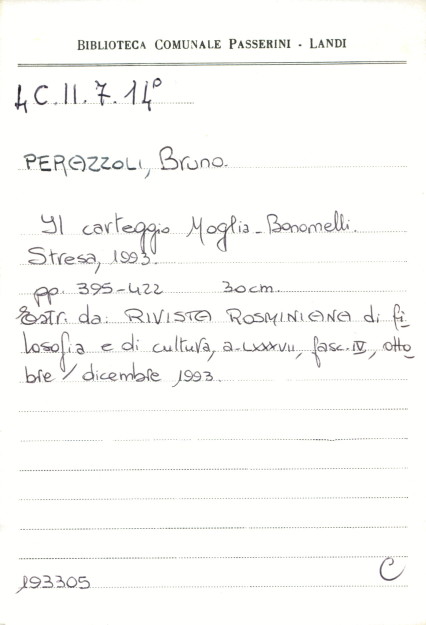 BIBLIOTECA COMUNALE PASSERINI - LANDI
4 C.II.7.14°
PERAZZOLI, Bruno.
Il carteggio Moglia-Bonomelli.
Stresa, 1993.
pp. 395-422 30 cm.
Estr. da: RIVISTA ROSMINIANA di fi
losofia e di cultura, a. LXXXVII, fasc. IV, otto
bre/dicembre 1993.
193305 C